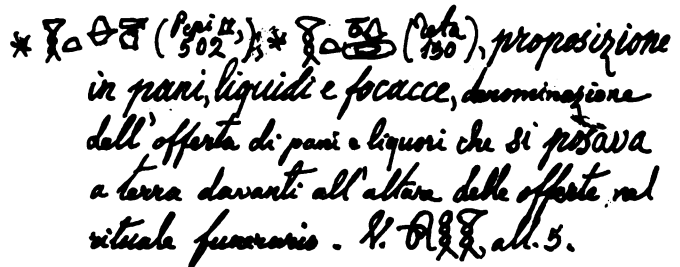 * (Pepi II, 502); * (Neta 130), proposizione
in pani, liquidi e focacce, denominazione
dell'offerta di pani e liquori che si posava
a terra davanti all'altare delle offerte nel
rituale funerario. V. all. 5.